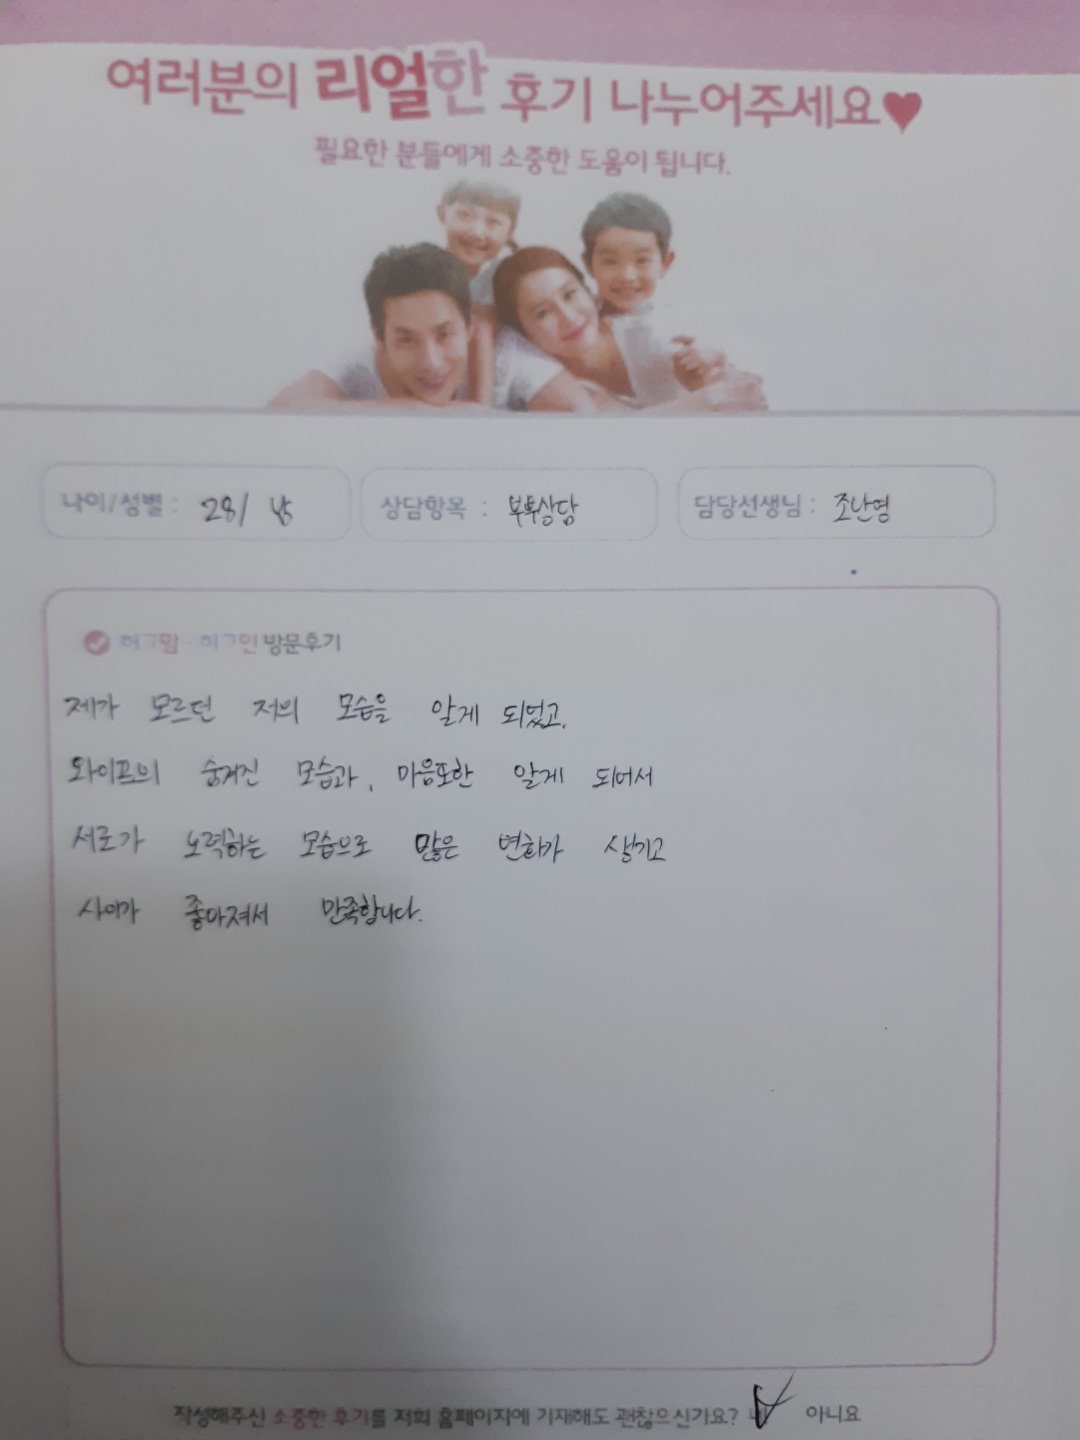 여러분의 리얼한 후기 나누어주세요♥
필요한 분들에게 소중한 도움이 됩니다.
나이/성별 : 28/ 남
상담항목 : 부부상담
담당선생님 : 조난영
허그맘 · 허그인 방문후기
제가 모르던 저의 모습을 알게 되었고,
와이프의 숨겨진 모습과, 마음또한 알게 되어서
서로가 노력하는 모습으로 많은 변화가 생기고
사이가 좋아져서 만족합니다.
작성해주신 소중한 후기를 저희 홈페이지에 기재해도 괜찮으신가요? 네 아니요